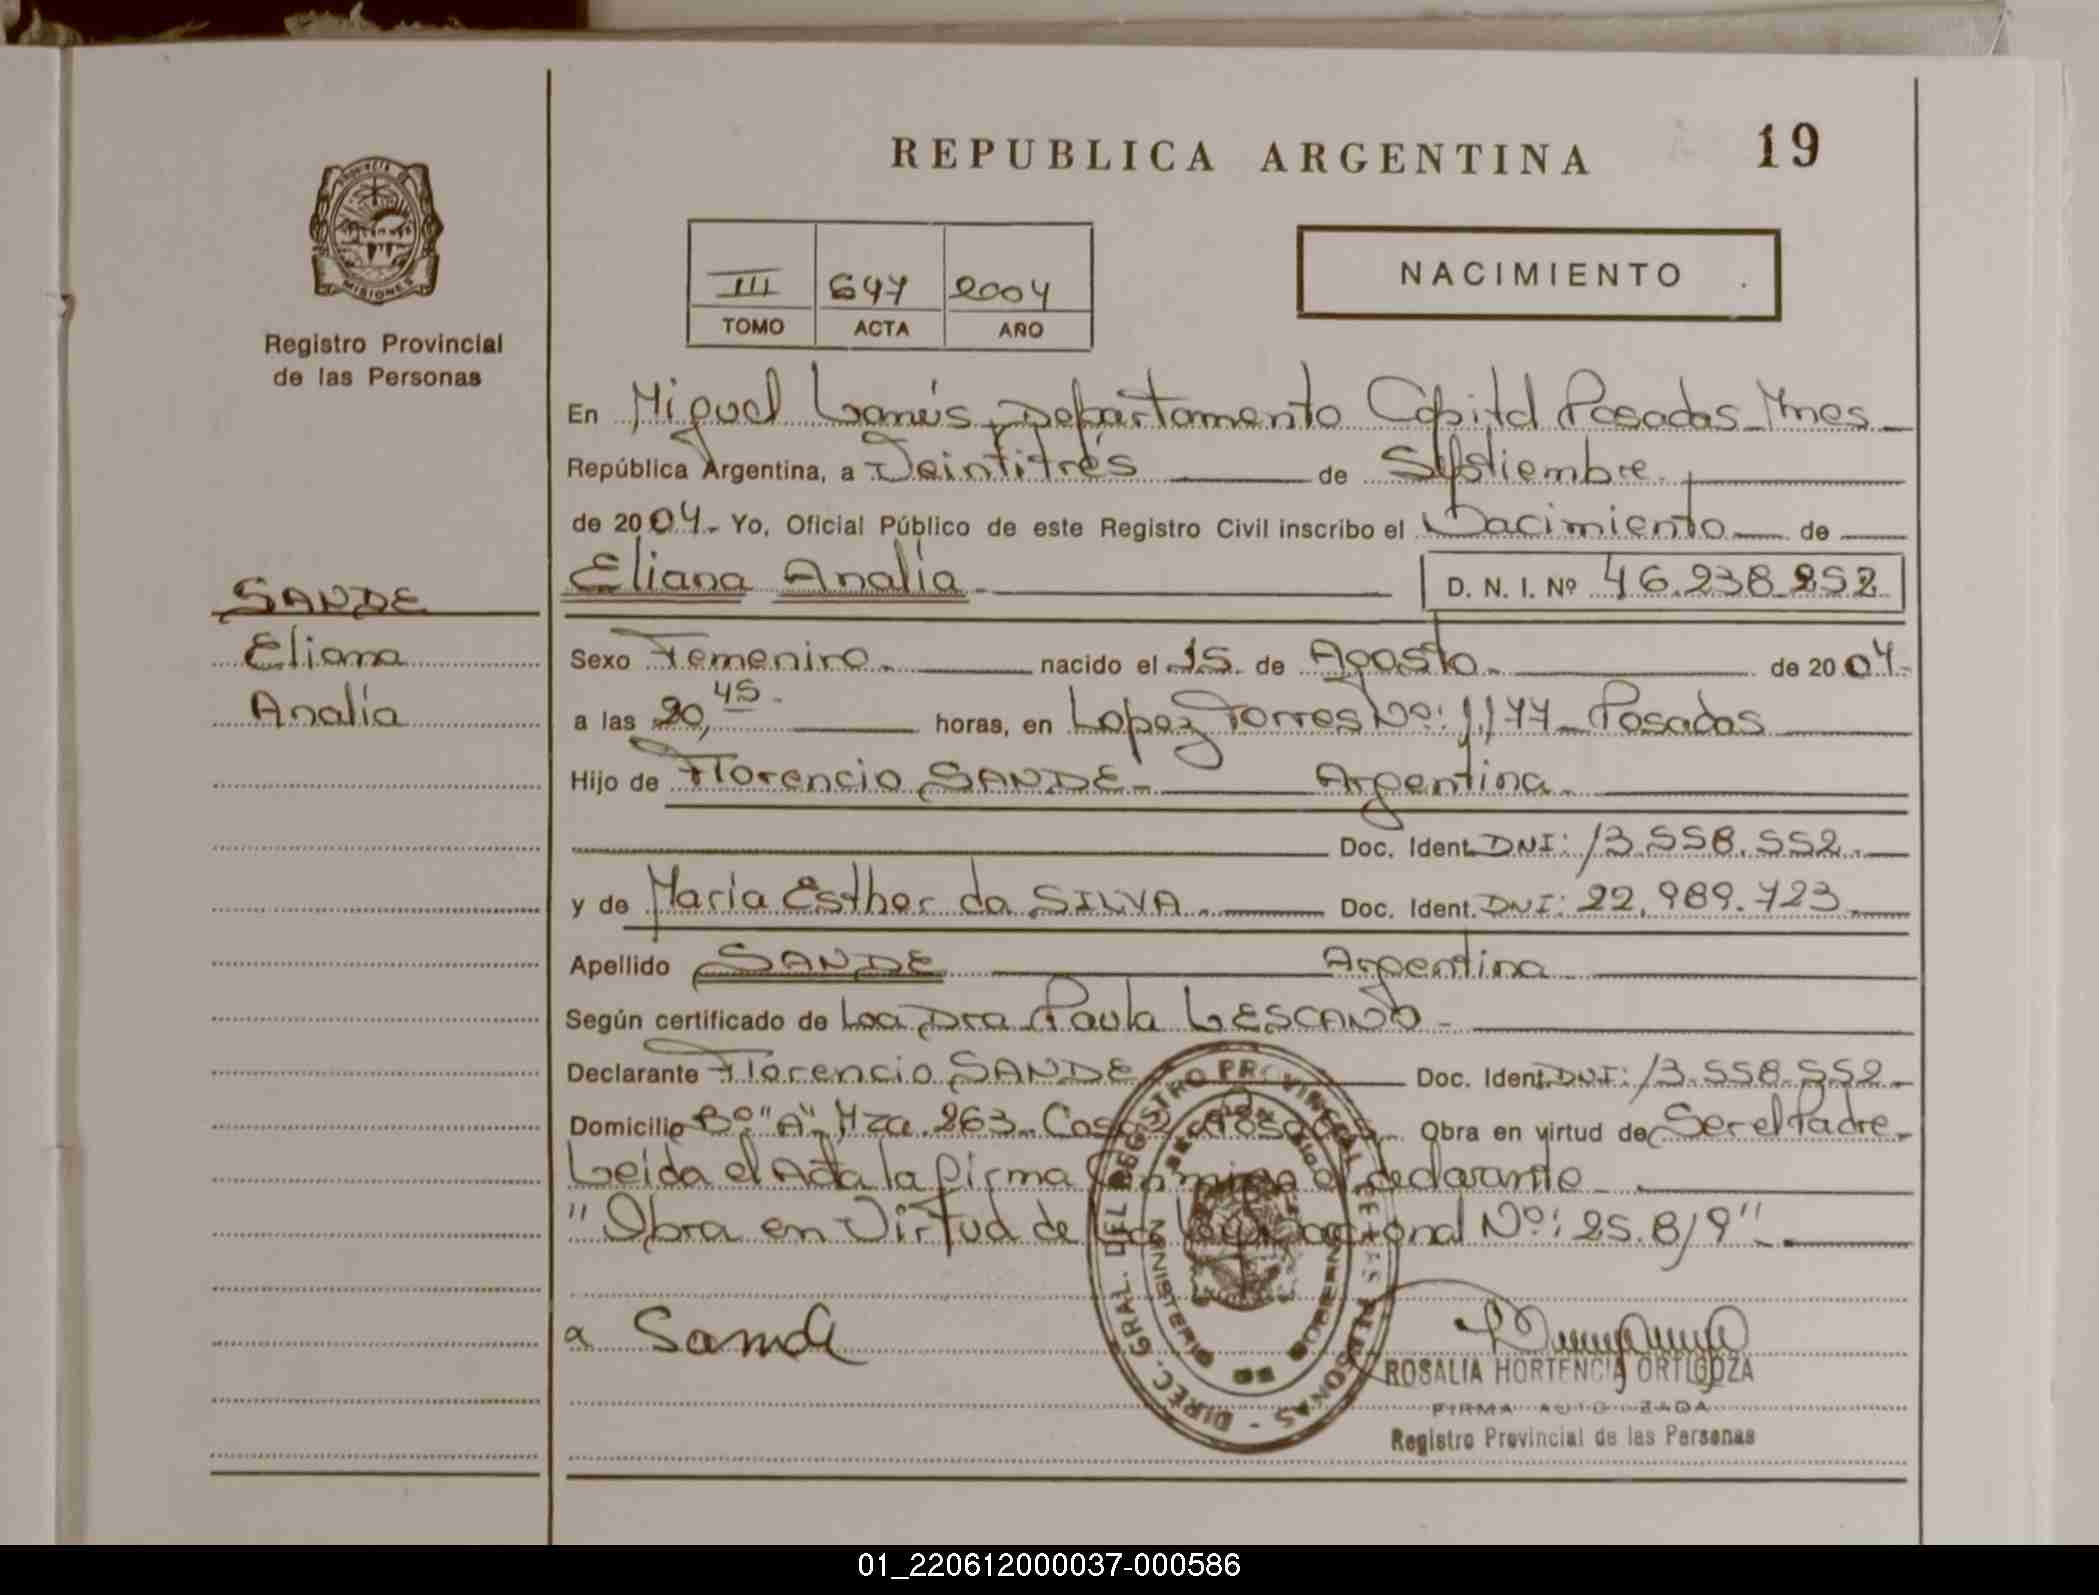 REPUBLICA ARGENTINA
19
PROVINCIA DE
MISIONES
Registro Provincial
de las Personas
III 647 2004
TOMO ACTA AÑO
NACIMIENTO
En Miguel Lanús, Departamento Capital Posadas Mnes
República Argentina, a Veintitrés de Septiembre
de 2004. Yo, Oficial Público de este Registro Civil inscribo el Nacimiento de
Eliana Analía D. N. I. Nº 46.238.252
SANDE
Eliana
Analía
Sexo Femenino nacido el 15 de Agosto de 2004.
a las 20,45 horas, en Lopez Torres Nº: 1177 Posadas
Hijo de Florencio SANDE Argentina
Doc. Ident. DNI: 13.558.552.
y de María Esther da SILVA. Doc. Ident. DNI: 22.989.723
Apellido SANDE Argentina
Según certificado de La Dra Paula LESCANO
Declarante Florencio SANDE Doc. Ident. DNI: 13.558.552.
Domicilio Bº "A" Mza. 263 Casa Posadas. Obra en virtud de Ser el Padre.
Leída el Acta la firma Conmigo el declarante
"Obra en Virtud de La Ley Nacional Nº: 25.819".
a Sande
DIREC. GRAL. DEL REGISTRO PROVINCIAL DE LAS PERSONAS
MINISTERIO DE GOBIERNO
ROSALIA HORTENCIA ORTIGOZA
FIRMA AUTORIZADA
Registro Provincial de las Personas
01_220612000037-000586